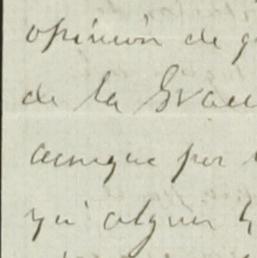 opinión de q
de la Grau
aunque por
algun